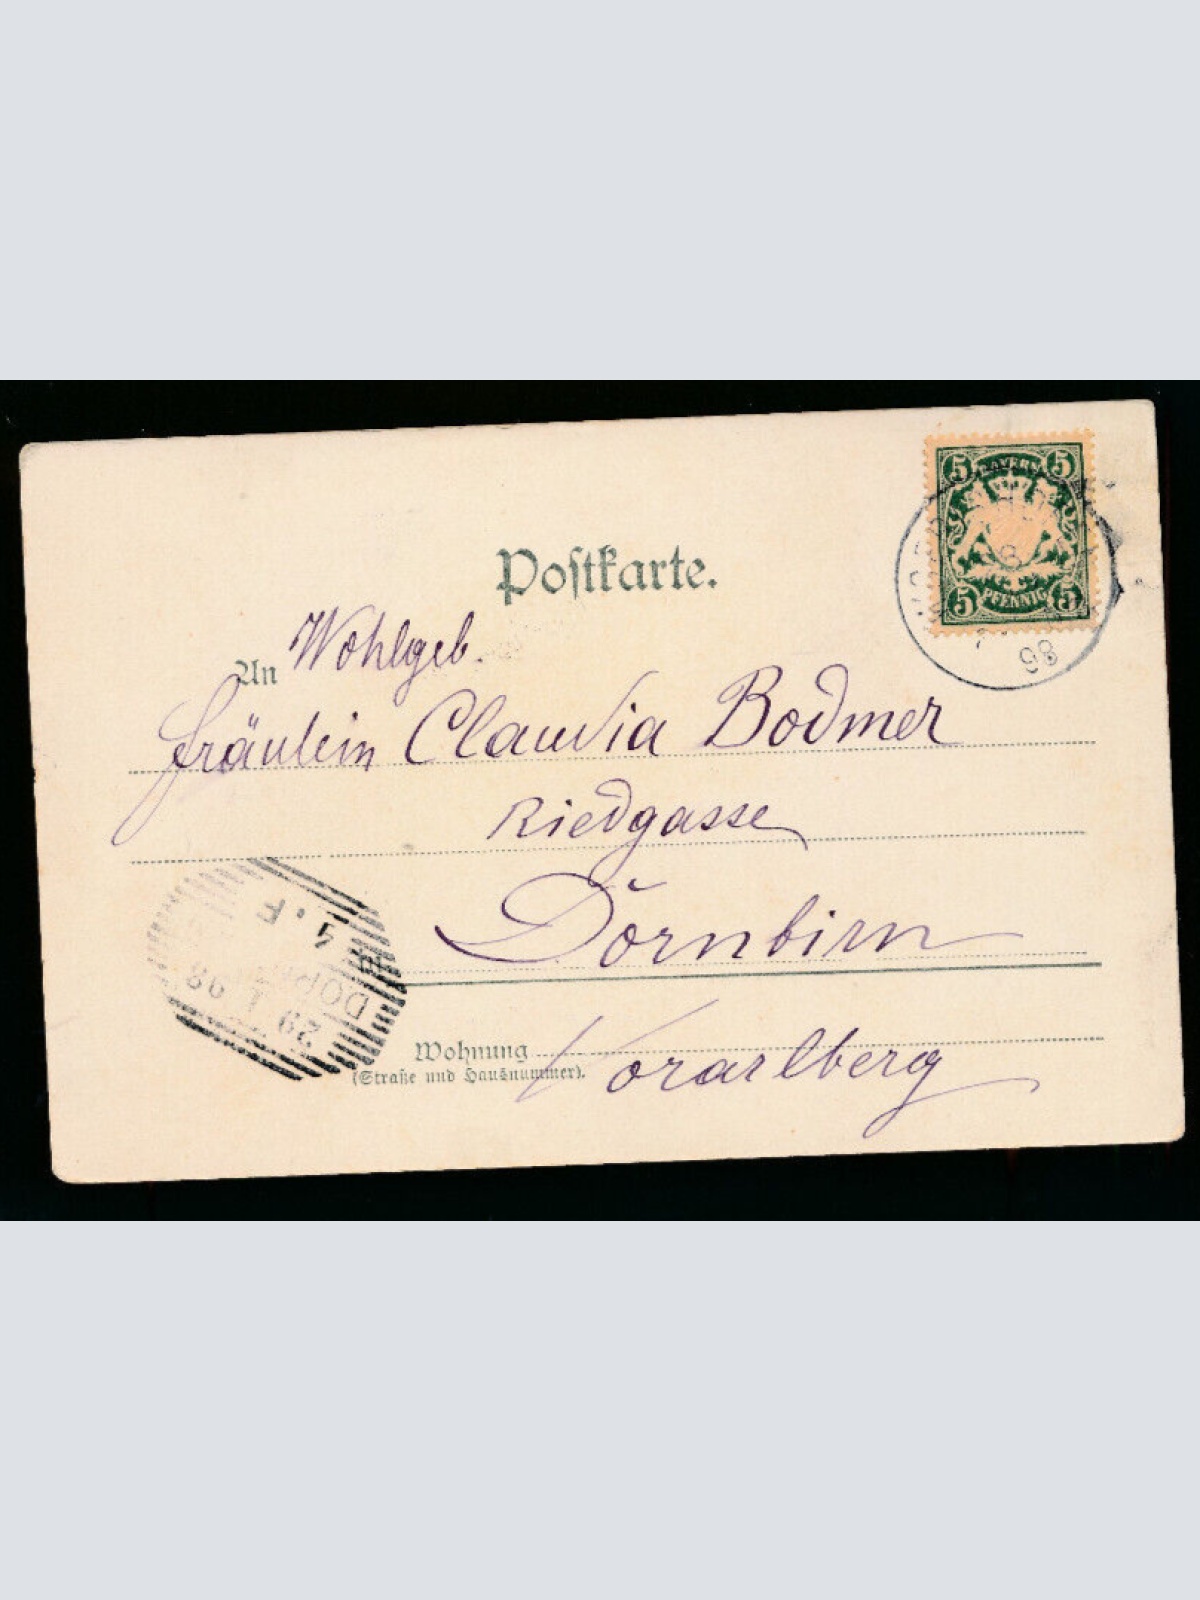 5 BAYERN 5
5 PFENNIG 5
8
98
Postkarte.
An Wohlgeb.
Fräulein Claudia Bodmer
Riedgasse
Dornbirn
in
Vorarlberg
Wohnung
(Straße und Hausnummer).
29 1 98
1. F